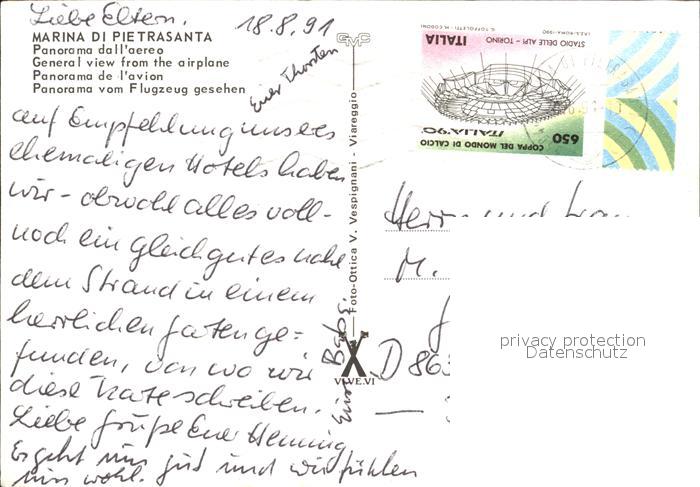 Liebe Eltern. 18.8.91
MARINA DI PIETRASANTA
Panorama dall'aereo
General view from the airplane
Panorama de l'avion
Panorama vom Flugzeug gesehen
Euer Thorsten
auf Empfehlung unseres
ehemaligen Hotels haben
wir - obwohl alles voll -
noch ein gleich gutes nahe
dem Strand in einem
herrlichen Garten ge=
funden, von wo wir
diese Karte schreiben.
Liebe Grüße Euer Henning
Es geht uns gut und wir fühlen
uns wohl.
Foto-Ottica V. Vespignani - Viareggio
GMC
VI.VE.VI
ITALIA
STADIO DELLE ALPI - TORINO
COPPA DEL MONDO DI CALCIO
ITALIA '90
650
Herrn und
M.
D 863
privacy protection
Datenschutz